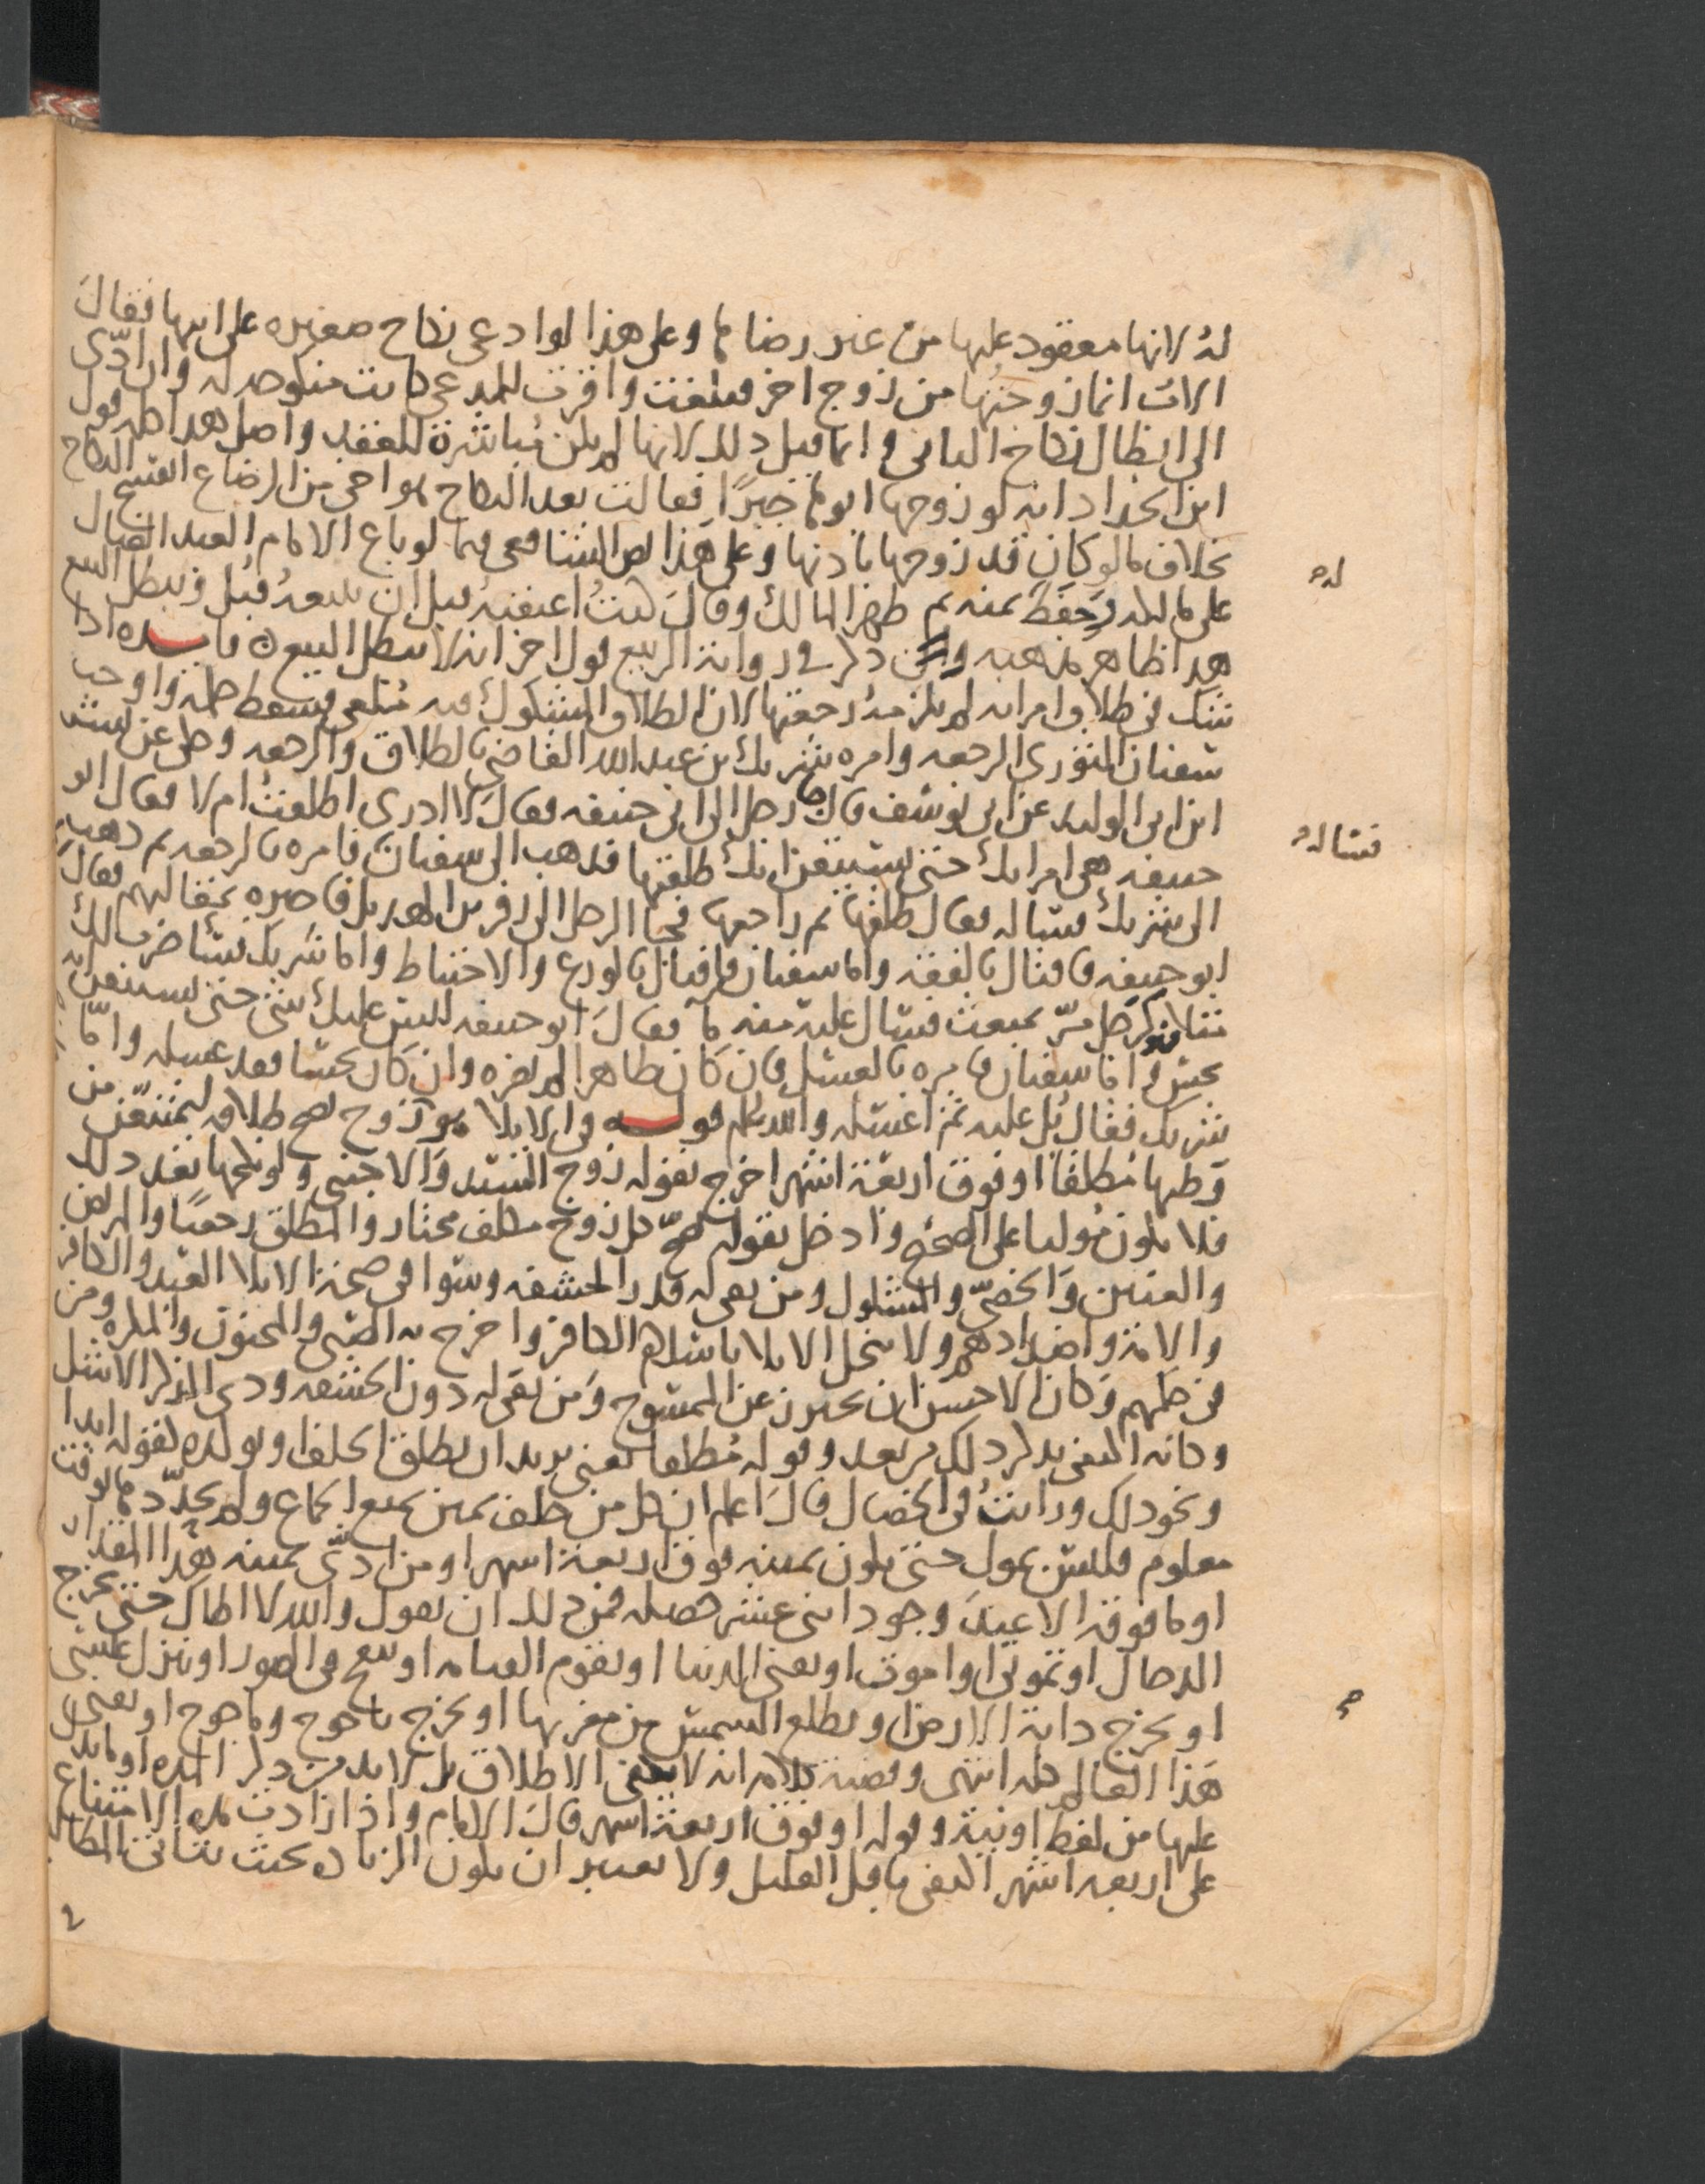 له لانها معقود عليها من غير رضاها وعلى هذا لو ادعى نكاح صغيره على ابيها فقال
الاب انما زوجتها من زوج اخر فبلغت واقرت للمدعي كانت منكوحه له وان ادى
الى ابطال نكاح الثاني وانما قبل ذلك لانها لم يكن مباشرة للعقد واصل هذا اصله قول
ابن الحداد انه لو زوجها ابوها جبرًا فقالت بعد النكاح هو اخي من الرضاع انفسخ النكاح
بخلاف مالو كان قد زوجها باذنها وعلى هذا نص الشافعي فيما لو باع الامام العبد الضال
على مالكه وحفظ ثمنه ثم ظهر المالك وقال كنتُ اعتقته قبل ان تبيعه قُبل ويبطل البيع
هذا ظاهر مذهبه وذكر في رواية الربيع قول اخر انه لا يبطل البيع ه فايــده اذا
شك في طلاق امراته لم يلزمه رجعتها لان الطلاق المشكوك فيه مُلغى فسقط حكمه واوجب
سفيان الثوري الرجعه وامره شريك بن عبد الله القاضي بالطلاق والرجعه وحكي عن بشر
ابن الوليد عن ابي يوسف قال جا رجل الى ابي حنيفه فقال لا ادري اطلقتُ ام لا فقال ابو
حنيفه هي امراتك حتى تستيقن انك طلقتها فذهب الى سفيان فامره بالرجعه ثم ذهب
الى شريك فساله فقال طلقها ثم راجعها فجا الرجل الى زفر بن الهذيل فاخبره بمقالتهم فقال
ابو حنيفه فافتاك بالفقه واما سفيان فافتاك بالورع والاحتياط واما شريك فسأضرب لك
مثلا رجل مرّ بمبعث فسال عليه منه ما فقال ابو حنيفه ليس عليك شي حتى تستيقن انه
نجس واما سفيان فامره بالغسل فان كان طاهرا لم يضره وان كان نجسا فقد غسله وامّا
شريك فقال بُل عليه ثم اغسله والله اعلم قولــه في الايلا هو زوج يصح طلاقه ليمتنعن من
وطيها مطلقا او فوق اربعة اشهر اخرج بقوله زوج السيد والاجنبي ولو نكحها بعد ذلك
فلا يكون موليا على الصحيح وادخل بقوله يصحّ كل زوج مكلف مختار والمطلق رجعيًا والمريض
والعنين والخصيّ والمشلول ومن بقي له قدر الحشفه وسوا في صحة الايلا العبد والكافر
والامة واضدادهم ولا ينحل الايلا باسلام الكافر واخرج به الصبي والمجنون والمكره ومن
في حكمهم وكان الاحسن ان يحترز عن الممسوح ومن بقي له دون الحشفه وذي الذكر الاشل
وكانه اكتفى بذكر ذلك من بعد وقوله مُطلقا يعني يريد ان يطلق الحلف او يولده بقوله ابدا
ونحو ذلك ورايتُ في الخصال قال اعلم ان كل من حلف بيمين تمنع الجماع ولم يحدّدها بوقت
معلوم فليس بمول حتى يكون يمينه فوق اربعة اشهر او من ادّى يمينه هذا المقدار
او ما فوقه الا عند وجود اثنى عشر خصله فمن ذلك ان يقول والله لا اطاك حتى يخرج
الدجال او تموتي او اموت او يفنى الدنيا او تقوم القيامه او ينفخ في الصور او ينزل عيسى
او يخرج دابة الارض او يطلع الشمس من مغربها او يخرج ياجوج وماجوج او يفنى
هذا العالم كله انتهى وقضية كلامه انه لا يكفي الاطلاق بل لا بد من ذكر المده او مايدل
عليها من لفظ او نية وقوله او فوق اربعة اشهر قال الامام واذا زادت مده الامتناع
على اربعه اشهر اكتفى باقل القليل ولا يعتبر ان يكون الزياده بحيث يتاتى المطالبه
له
فساله